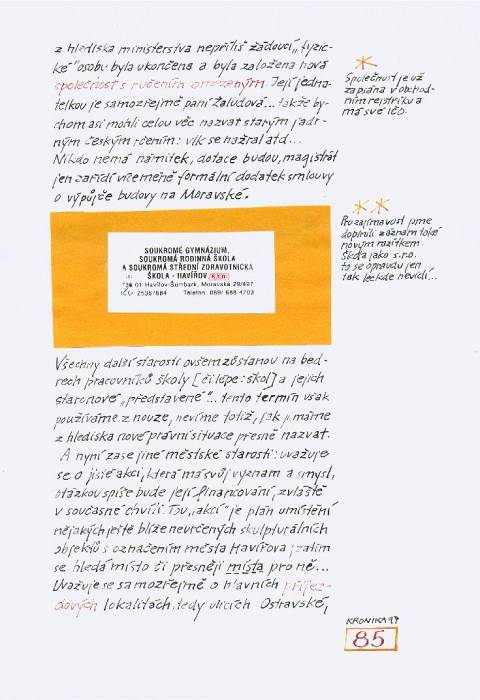 z hlediska ministerstva nepříliš žádoucí „fyzic-
ké" osoby byla ukončena a byla založena nová
společnost s ručením omezeným. Její jedna-
telkou je samozřejmě paní Žaludová... takže by-
chom asi mohli celou věc nazvat starým jadr-
ným českým rčením: vlk se nažral atd...
Nikdo nemá námitek, dotace budou, magistrát
jen zařídí víceméně formální dodatek smlouvy
o výpůjčce budovy na Moravské.
*
Společnost je už
zapsána v obchod-
ním rejstříku a
má své IČO.
SOUKROMÉ GYMNÁZIUM,
SOUKROMÁ RODINNÁ ŠKOLA
A SOUKROMÁ STŘEDNÍ ZDRAVOTNICKÁ
ŠKOLA - HAVÍŘOV, s.r.o.
736 01 Havířov-Šumbark, Moravská 29/497
IČO: 25367684 Telefon: 069/ 688 4703
**
Pro zajímavost jsme
doplnili záznam také
novým razítkem.
Škola jako s.r.o.
to se opravdu jen
tak leckde nevidí...
Všechny další starosti ovšem zůstanou na bed-
rech pracovníků školy [či lépe: škol] a jejich
staronové „představené"... tento termín však
používáme z nouze, nevíme totiž, jak ji máme
z hlediska nové právní situace přesně nazvat.
A nyní zase jiné městské starosti: uvažuje
se o jisté akci, která má svůj význam a smysl,
otázkou spíše bude její financování, zvláště
v současné chvíli. Tou „akcí" je plán umístění
nějakých ještě blíže neurčených skulpturálních
objektů s označením města Havířova; zatím
se hledá místo či přesněji místa pro ně...
Uvažuje se samozřejmě o hlavních příjez-
dových lokalitách, tedy ulicích Ostravské,
KRONIKA 97
85